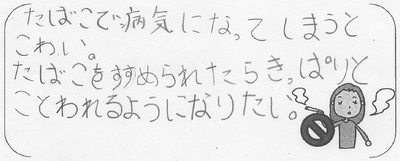 たばこで病気になってしまうと
こわい。
たばこをすすめられたらきっぱりと
ことわれるようになりたい。